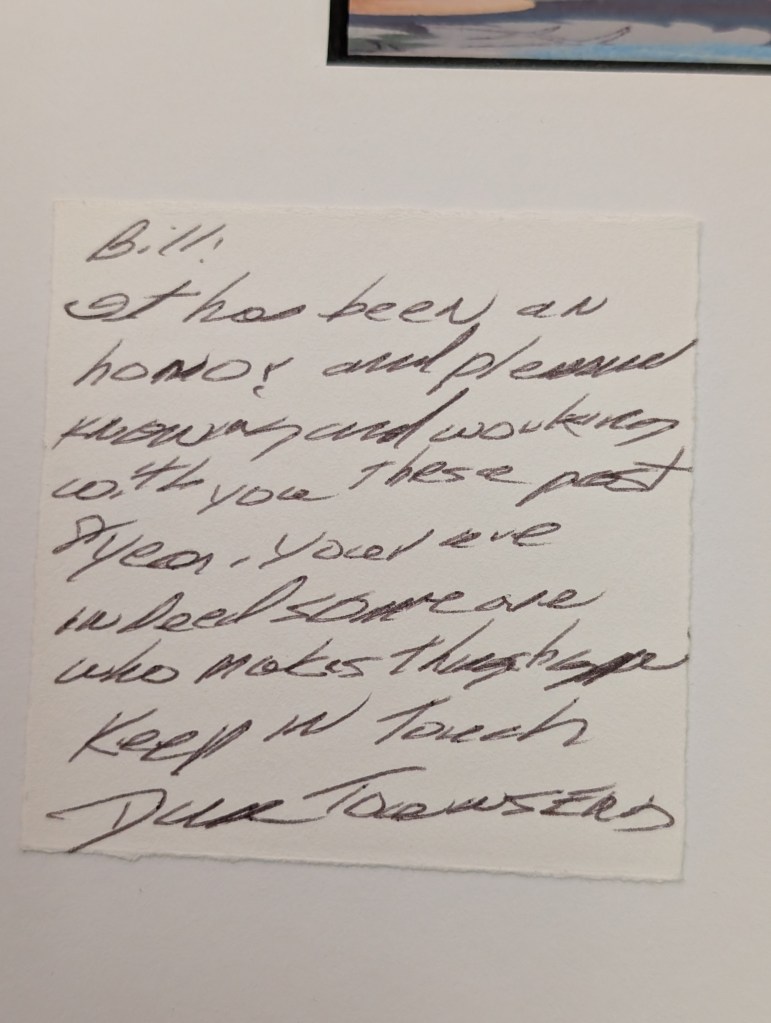 Bill:
It has been an
honor and pleasure
knowing and working
with you these past
8 year. You are
indeed someone
who makes things happen
Keep in Touch
Townsend